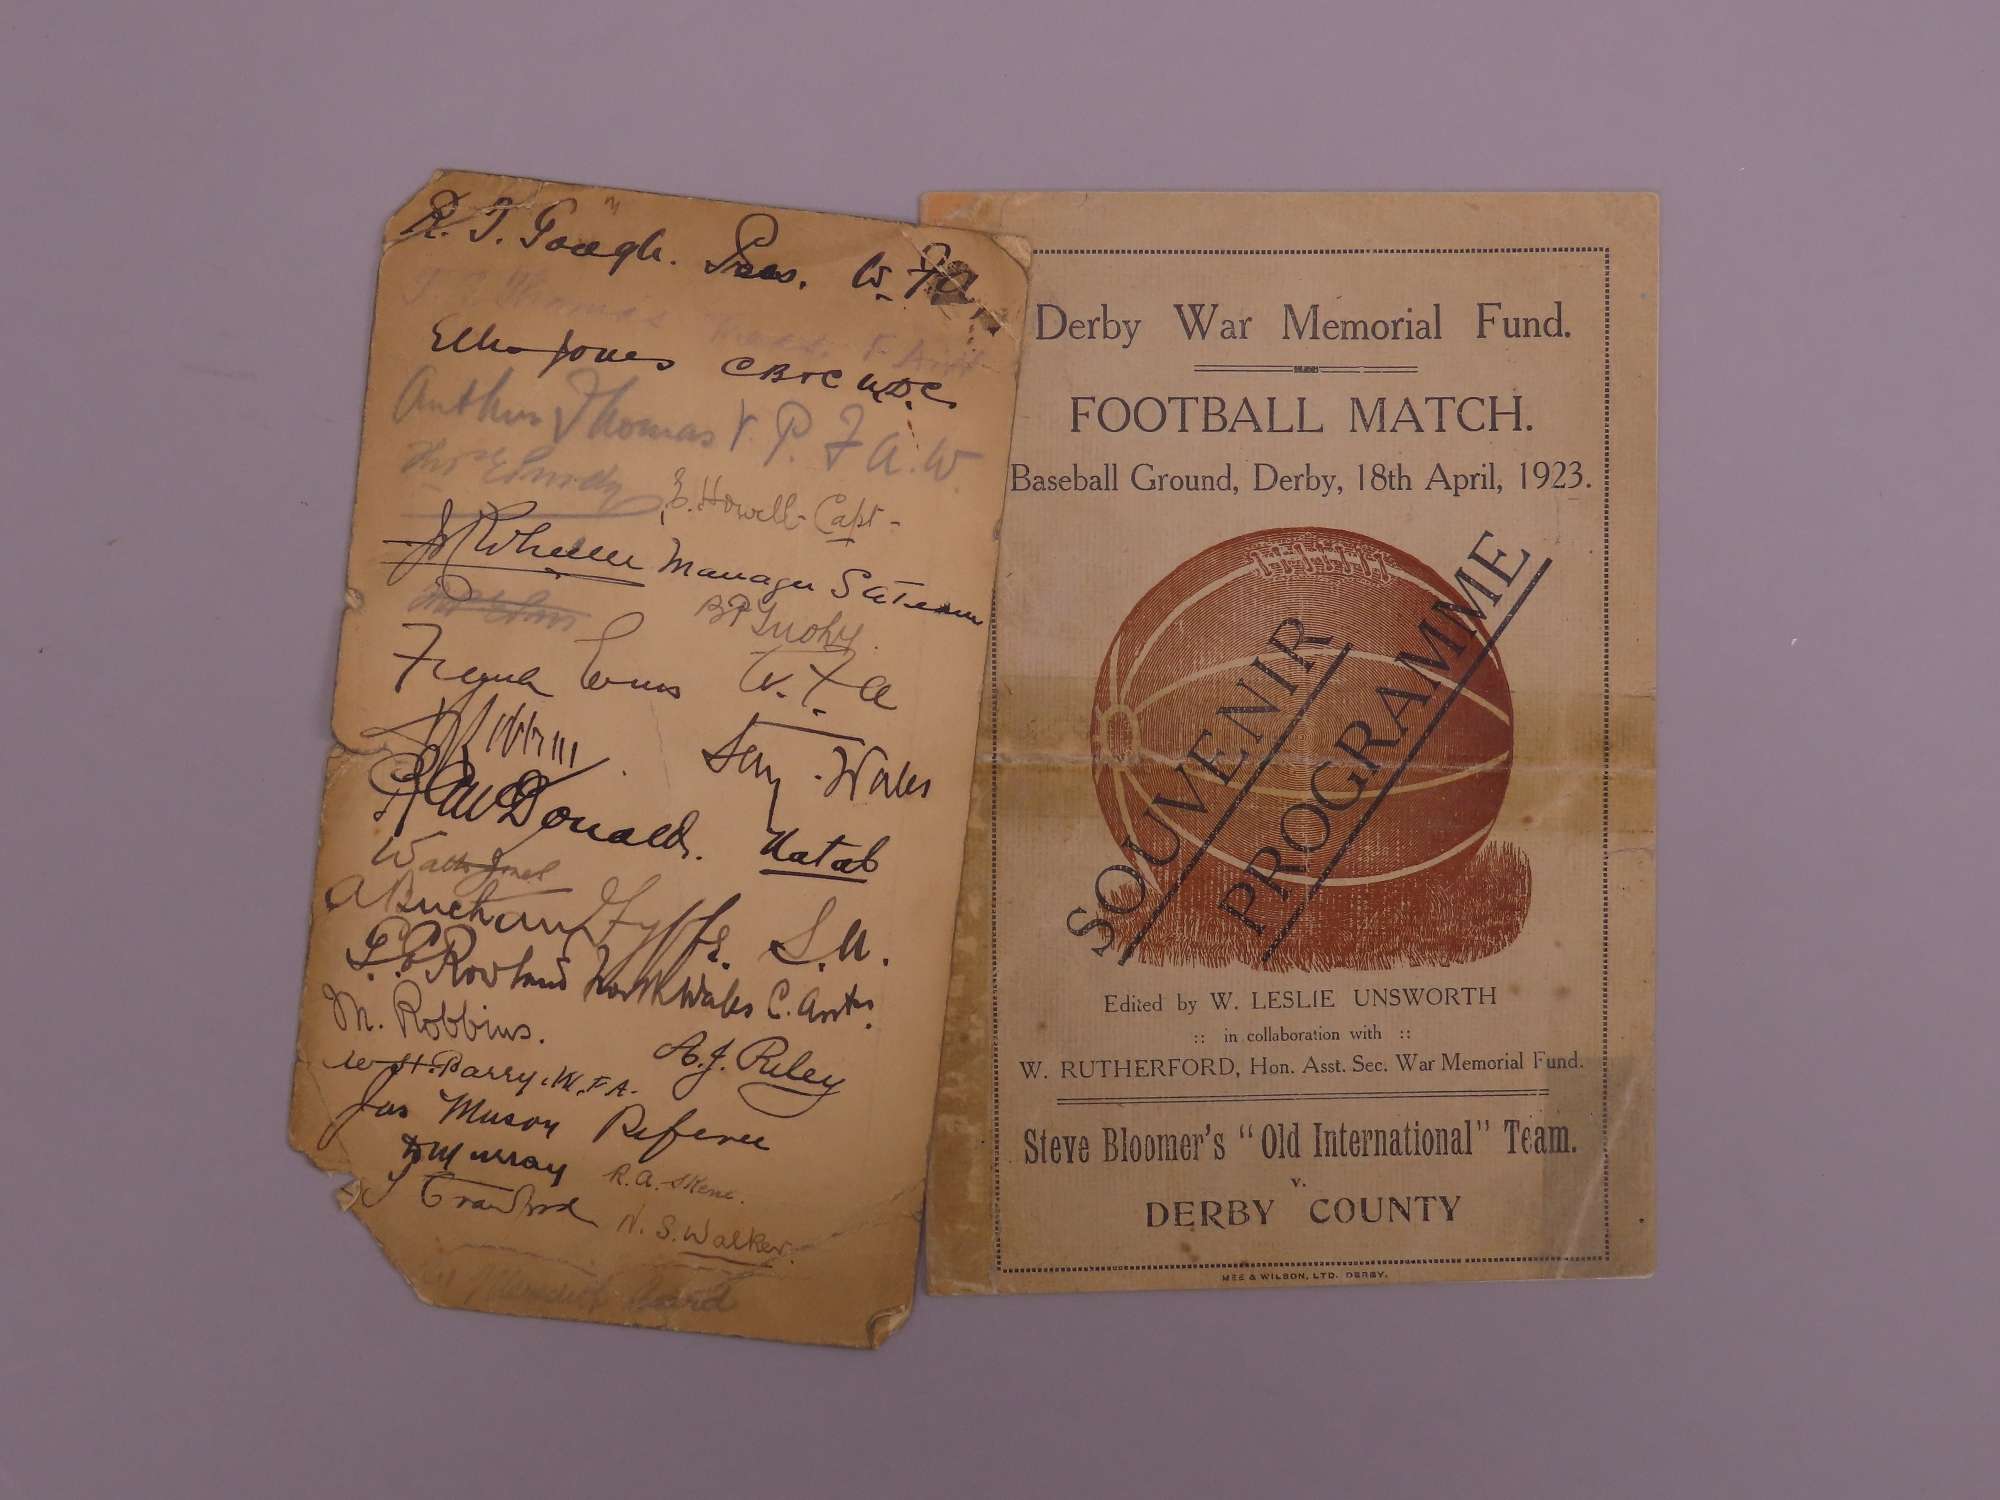 R. T. Gough. Pres. W. F. A.
Thomas
Jones
Arthur Thomas V. P. F. A. W.
E. Howell - Capt -
Manager S A Team
B P Tuohy
Frank W. F. A
Sec. Wales
McDonald. Natal
A Buchan Fyffe. S. A.
Rowland North Wales C.
M. Robbins.
A. J. Riley
W H. Parry. W. F. A.
Jas Mason Referee
Murray
R. A. Skene.
Crawford
N. S. Walker.
Derby War Memorial Fund.
FOOTBALL MATCH.
Baseball Ground, Derby, 18th April, 1923.
SOUVENIR
PROGRAMME
Edited by W. LESLIE UNSWORTH
:: in collaboration with ::
W. RUTHERFORD, Hon. Asst. Sec. War Memorial Fund.
Steve Bloomer's "Old International" Team.
v.
DERBY COUNTY
MEE & WILSON, LTD. DERBY.